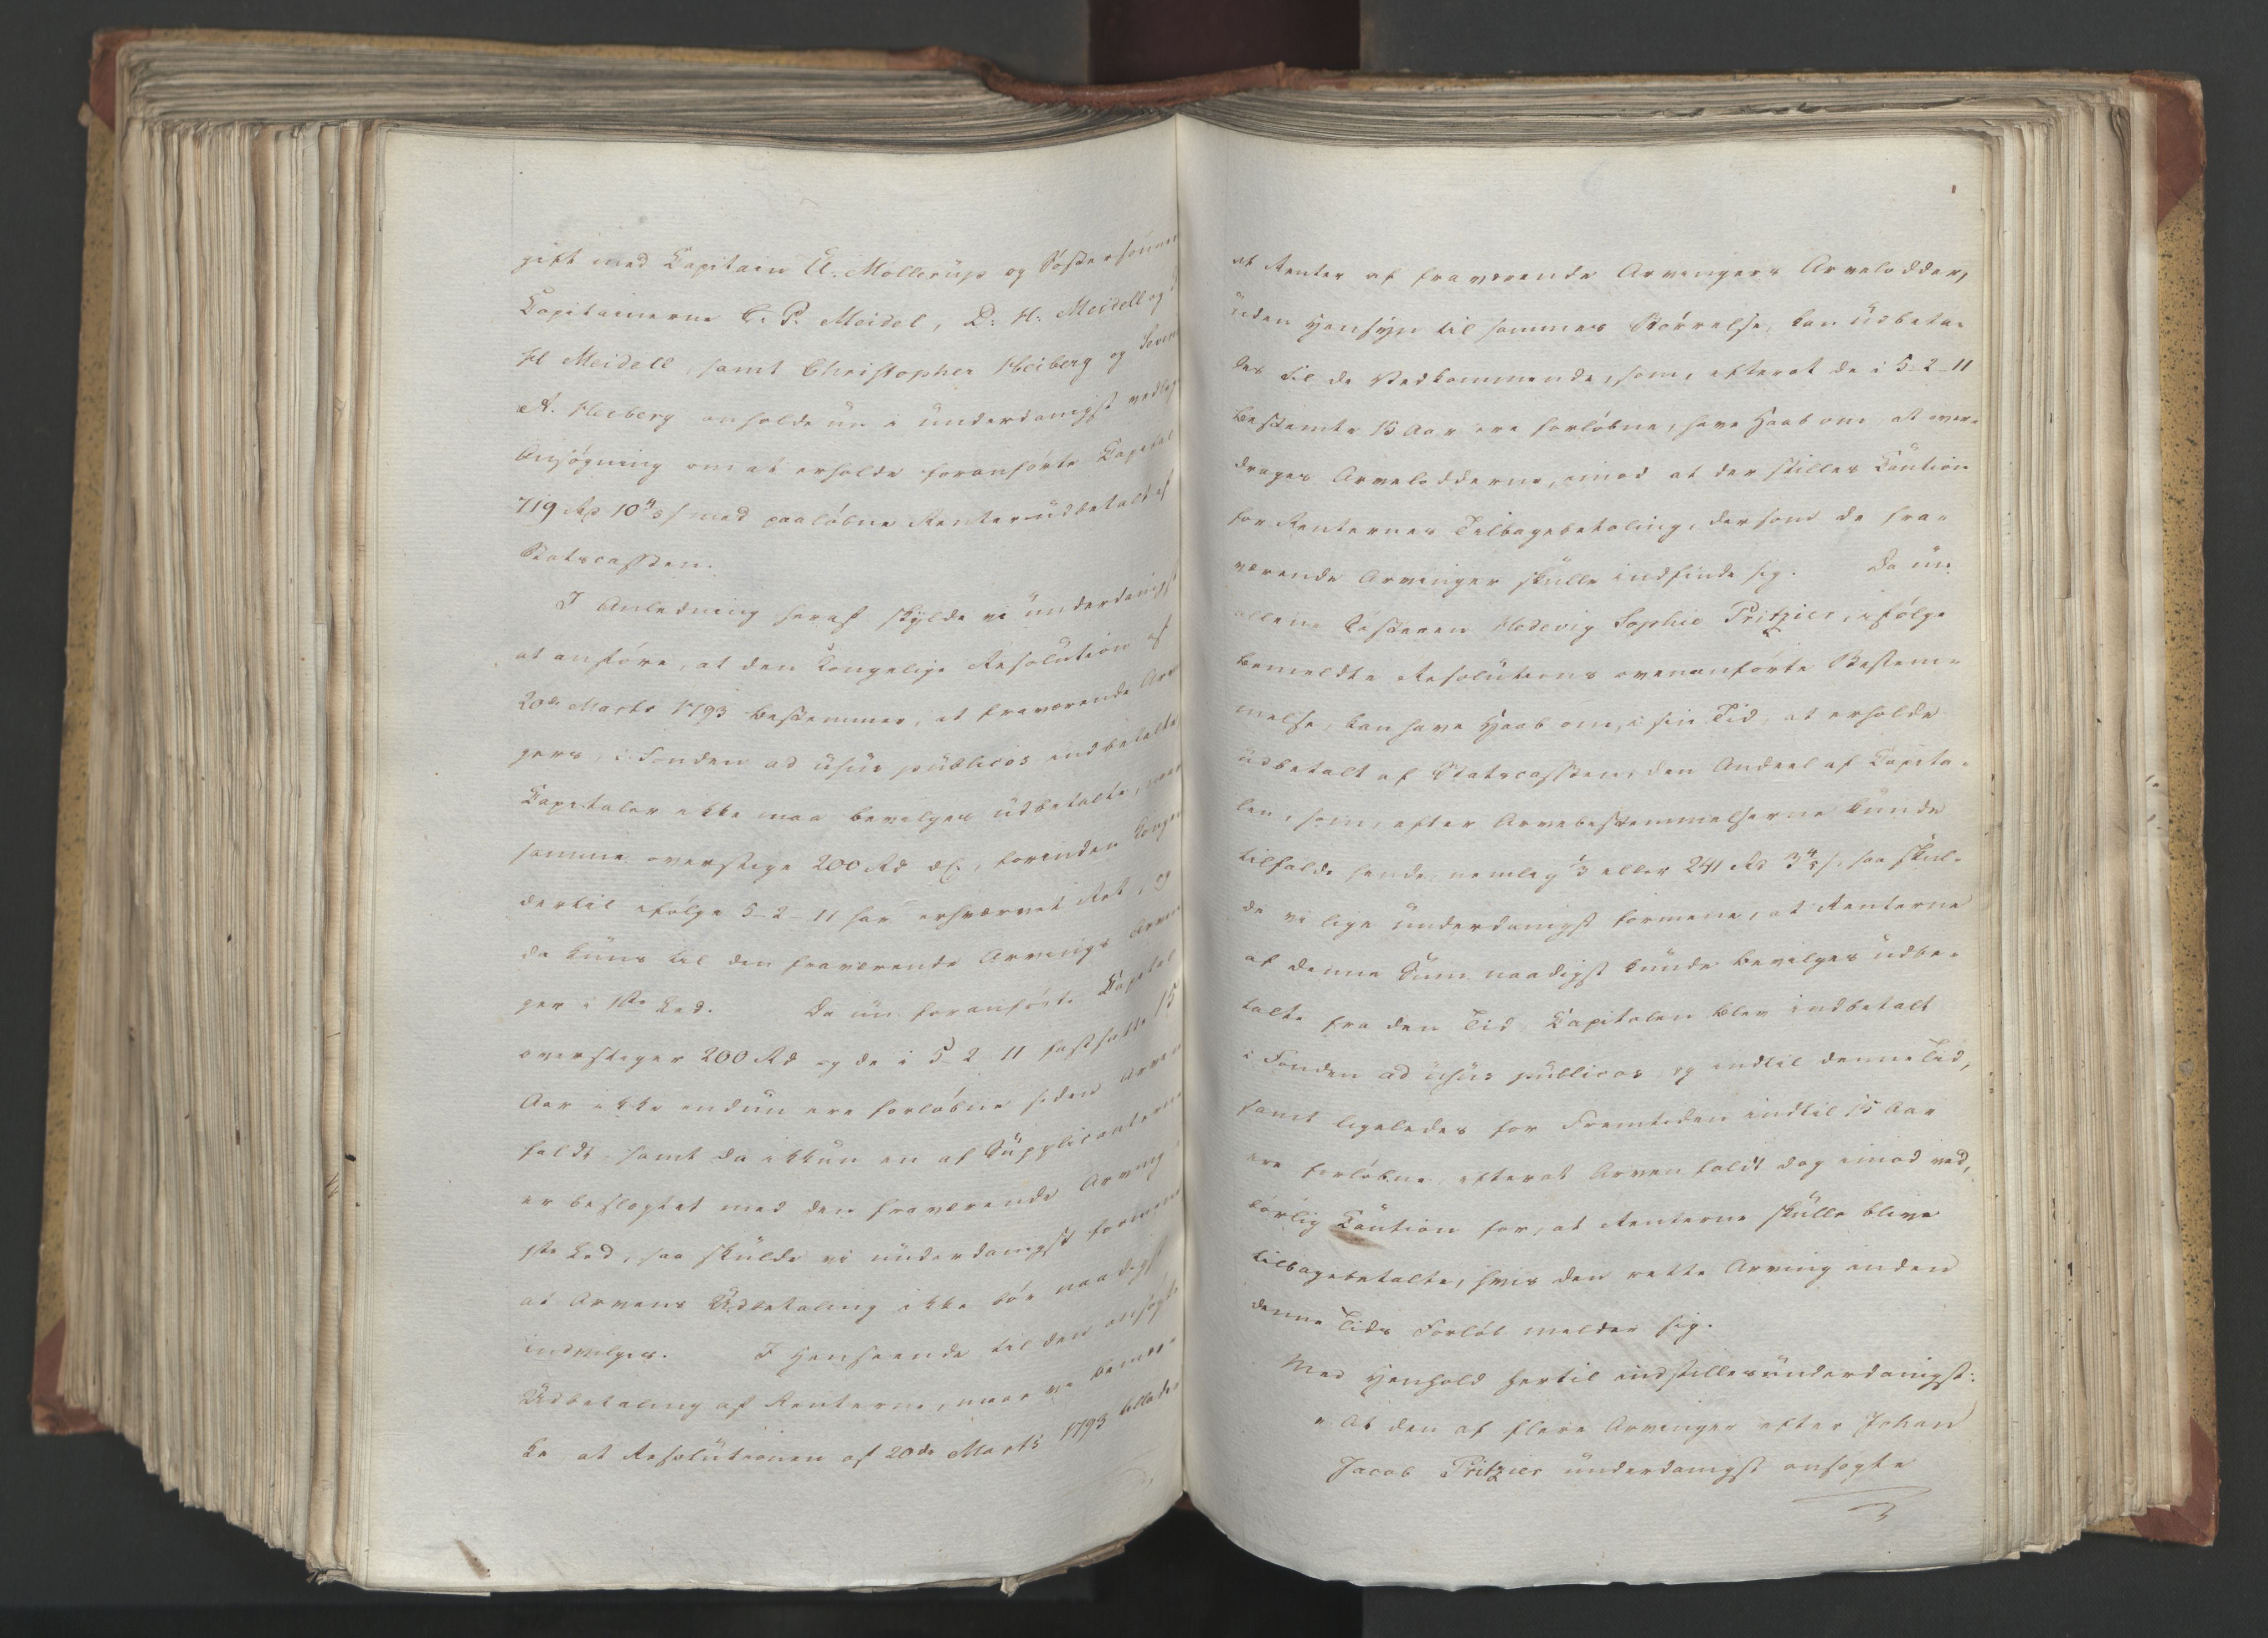 gift med Capitain U. Møllerup og Søstersønnen
Capitainerne C. P. Meidel, D. H. Meidell og
H Meidell, samt Christopher Heiberg og Sever
A. Heiberg anholde nu i underdanigst vedlagt
Ansøgning om at erholde foranførte Capital
719 Rd 10 4/5 s med paaløbne Renter udbetalt af
Statscassen.
I Anledning heraf skulde vi underdanigst
at anføre, at den Kongelige Resolution af
20de Marts 1793 bestemmer, at fraværende Arvin
gers, i Fonden ad usus publicos indbetalte
Capitaler ikke maa bevilges udbetalte, naar
samme overstige 200 Rd, forinden Kongen
dertil ifølge 5-2-11 har erhvervet Ret, og
da kuns til den fraværende Arvings Arvin
ger i 1ste Led. Da nu foranførte Capital
overstiger 200 Rd og de i 5-2-11 fastsatte 15
Aar ikke endnu ere forløbne siden Arven
faldt, samt da ikkun en af Supplicanterne
er beslægtet med den fraværende Arving i
1ste Led, saa skulde vi underdanigst formene
at Arvens Udbetaling ikke bør naadigst
indvilges. I Henseende til den ansøgte
Udbetaling af Renterne, maae vi bemær
ke at Resolutionen af 20de Marts 1793 tillader
at Renter af fraværende Arvingers Arvelodder,
uden Hensyn til sammes Størrelse, kan udbeta-
les til de Vedkommende, som, efterat de i 5-2-11
bestemte 15 Aar ere forløbne, have Haab om at over-
drages Arvelodderne, imod at der stilles Caution
for Renternes Tilbagebetaling, dersom de fra-
værende Arvinger skulle indfinde sig. Da nu
allene Søsteren Hedevig Sophie Pritzier, ifølge
bemeldte Resolutions ovenanførte Bestem-
melse, kan have Haab om, i sin Tid, at erholde
udbetalt af Statscassen, den Andeel af Capita-
len, som, efter Arvebestemmelserne kunde
tilfalde hende, nemlig 1/3 eller 241 Rd 3 4/5 s, saa skul-
de vi lige underdanigst formene, at Renterne
af denne Sum naadigst kunde bevilges udbe-
talte fra den Tid Capitalen blev indbetalt
i Fonden ad usus publicos og indtil denne Tid,
samt ligeledes for Fremtiden indtil 15 Aar
ere forløbne, efterat Arven faldt dog imod ved-
børlig Caution for, at Renterne skulle blive
tilbagebetalte, hvis den rette Arving inden
denne Tids Forløb melder sig.
Med Henhold hertil indstilles underdanigst:
" At den af flere Arvinger efter Johan
Jacob Pritzier underdanigst ansøgte